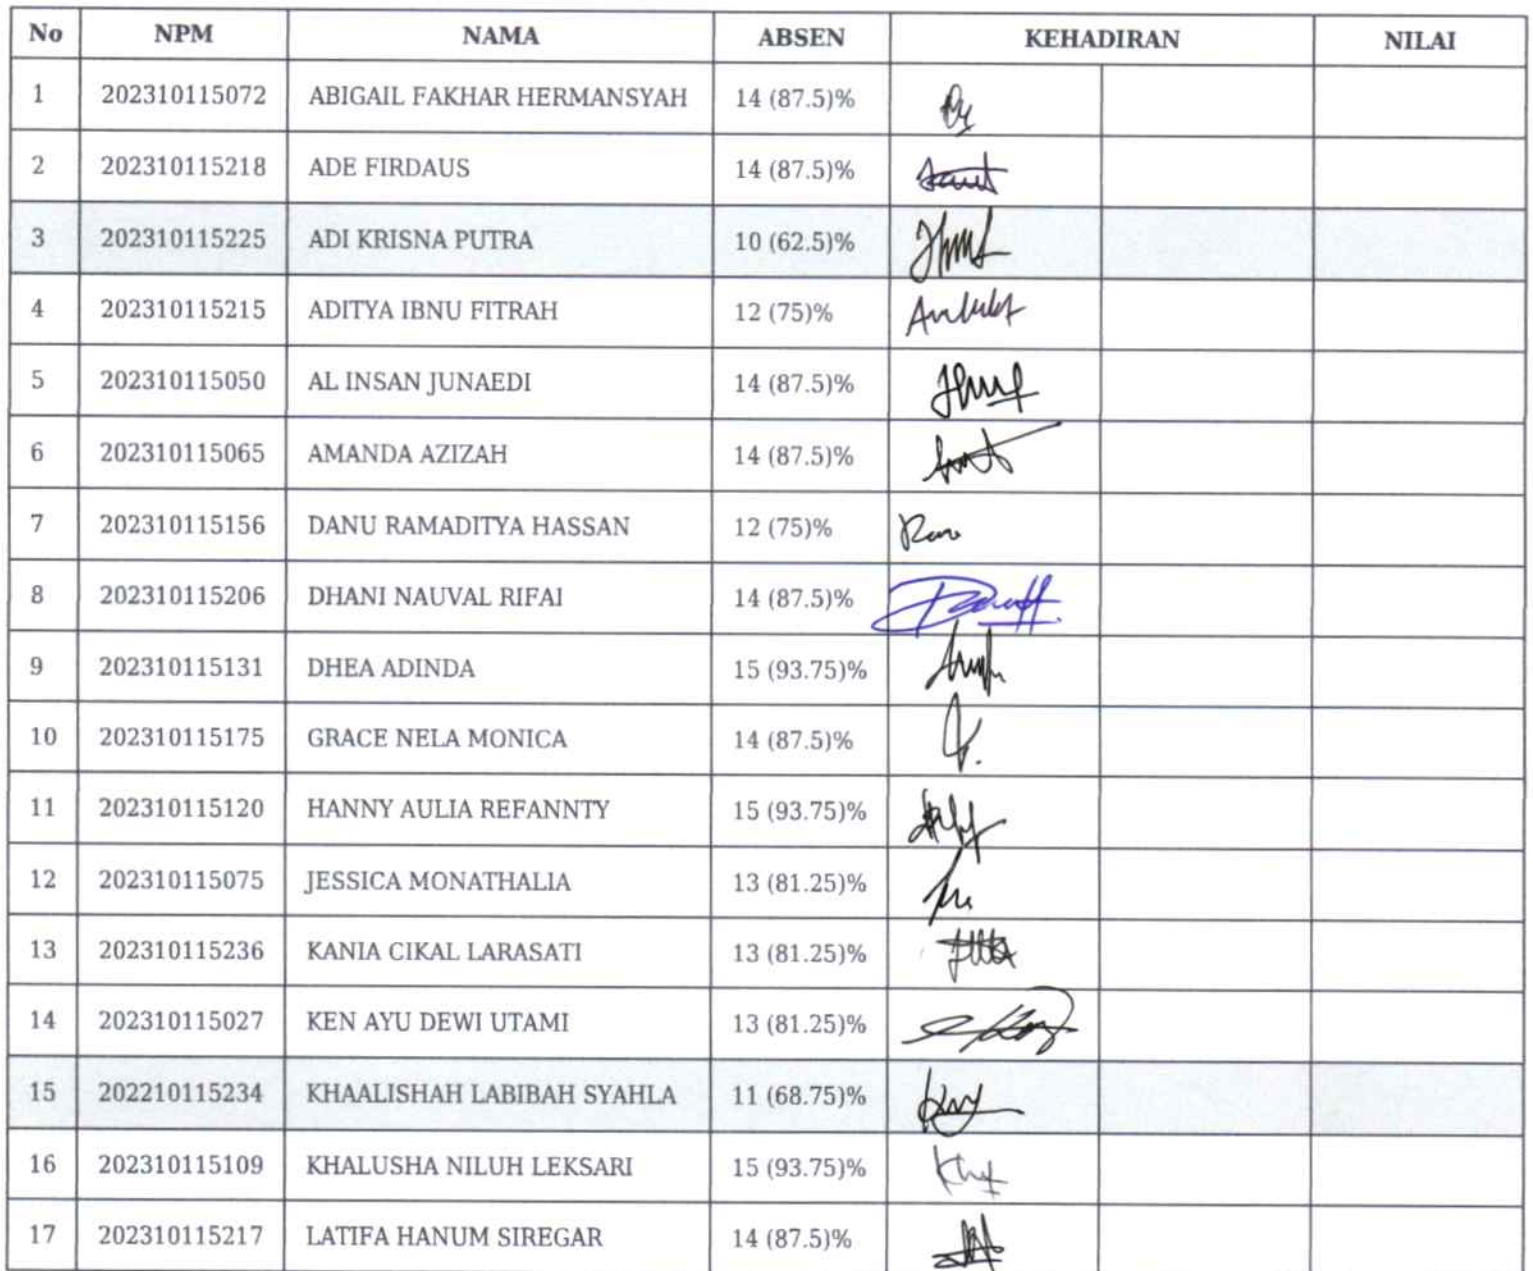 No NPM NAMA ABSEN KEHADIRAN NILAI
1 202310115072 ABIGAIL FAKHAR HERMANSYAH 14 (87.5)%
2 202310115218 ADE FIRDAUS 14 (87.5)%
3 202310115225 ADI KRISNA PUTRA 10 (62.5)%
4 202310115215 ADITYA IBNU FITRAH 12 (75)%
5 202310115050 AL INSAN JUNAEDI 14 (87.5)%
6 202310115065 AMANDA AZIZAH 14 (87.5)%
7 202310115156 DANU RAMADITYA HASSAN 12 (75)%
8 202310115206 DHANI NAUVAL RIFAI 14 (87.5)%
9 202310115131 DHEA ADINDA 15 (93.75)%
10 202310115175 GRACE NELA MONICA 14 (87.5)%
11 202310115120 HANNY AULIA REFANNTY 15 (93.75)%
12 202310115075 JESSICA MONATHALIA 13 (81.25)%
13 202310115236 KANIA CIKAL LARASATI 13 (81.25)%
14 202310115027 KEN AYU DEWI UTAMI 13 (81.25)%
15 202210115234 KHAALISHAH LABIBAH SYAHLA 11 (68.75)%
16 202310115109 KHALUSHA NILUH LEKSARI 15 (93.75)%
17 202310115217 LATIFA HANUM SIREGAR 14 (87.5)%